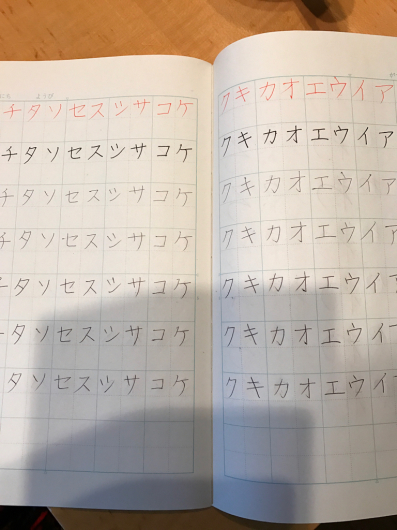 アアア
イイイイイイイ
ウウウウウウウ
エエエエエエエ
オオオオオオオ
カカカカカカカ
キキキキキキキ
ククククククク
ケケケケケケケ
コココココココ
サササササササ
シシシシシシシ
ススススススス
セセセセセセセ
ソソソソソソソ
タタタタタタタ
チチチチチ